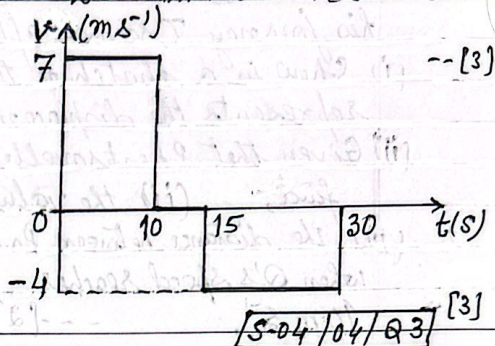 v (ms⁻¹)
7
--[3]
0
10
15
30
t(s)
-4
[3]
S-04/04/Q3